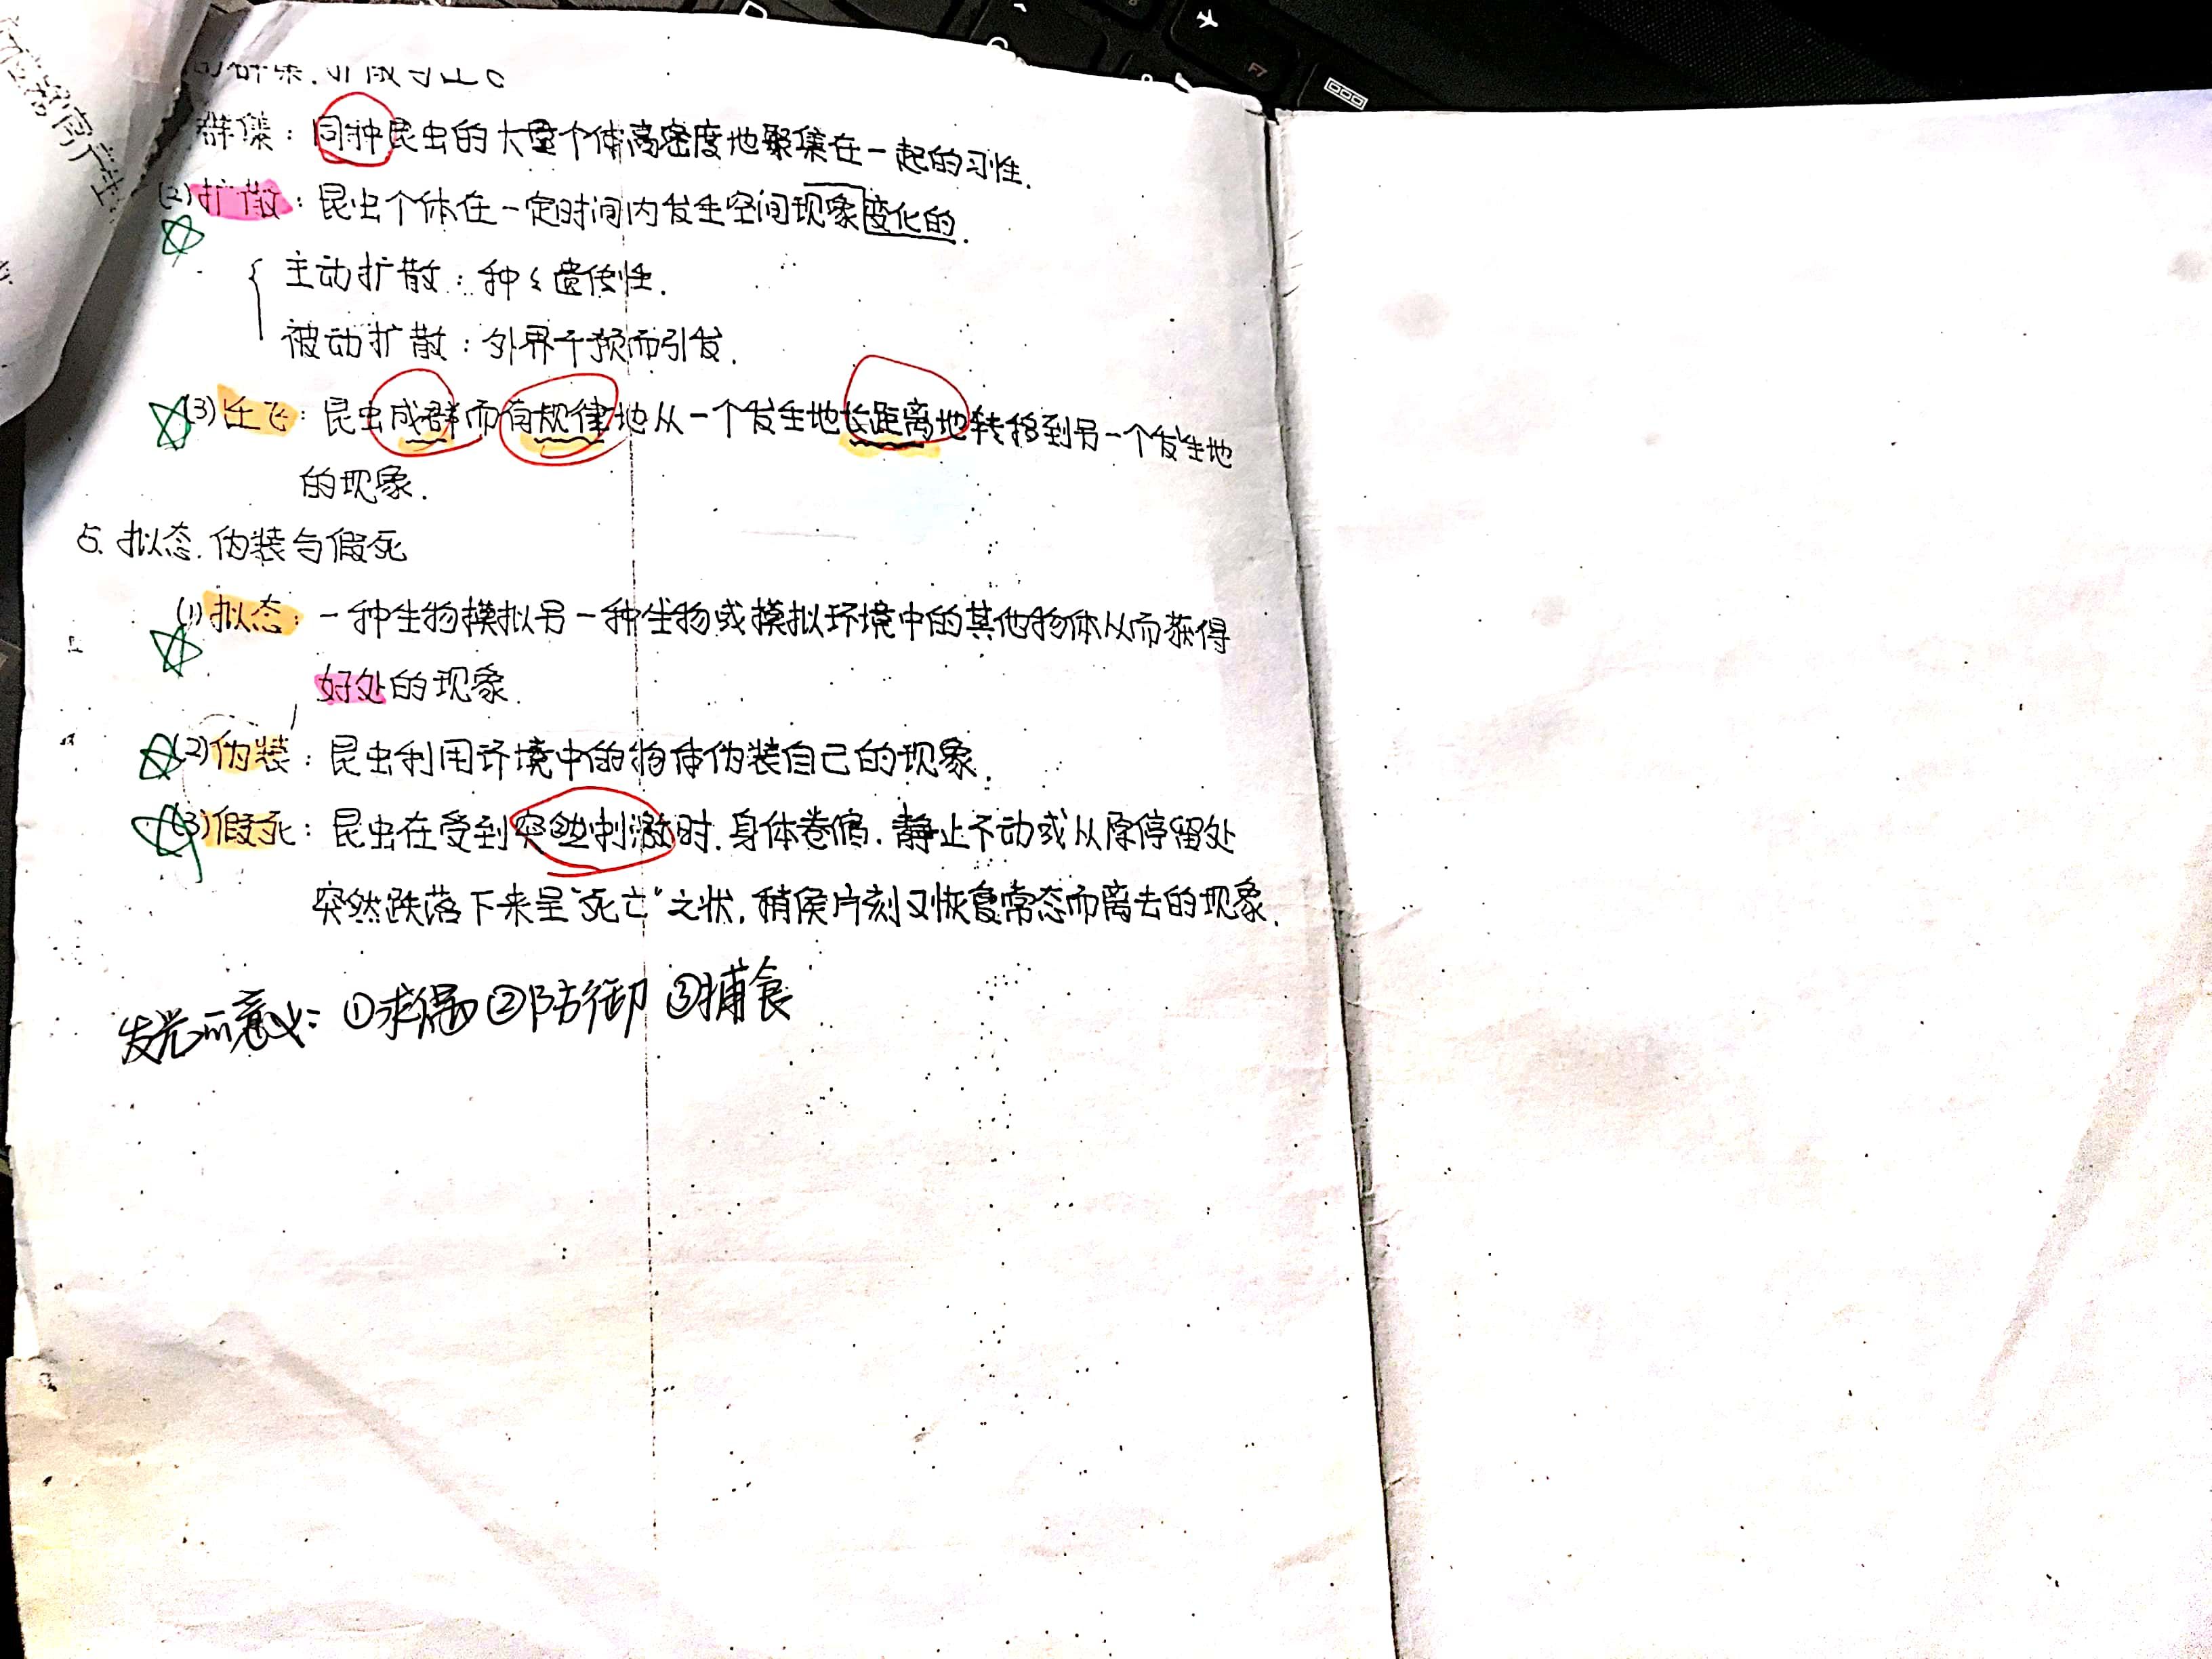 群集：同种昆虫的大量个体高密度地聚集在一起的习性.
(2)扩散：昆虫个体在一定时间内发生空间现象变化的.
主动扩散：种々遗传性.
被动扩散：外界干预而引发.
(3)迁飞：昆虫成群而有规律地从一个发生地长距离地转移到另一个发生地
的现象.
5.拟态.伪装与假死
(1)拟态：一种生物模拟另一种生物或模拟环境中的其他物体从而获得
好处的现象.
(2)伪装：昆虫利用环境中的物体伪装自己的现象.
(3)假死：昆虫在受到突然刺激时.身体卷缩.静止不动或从原停留处
突然跌落下来呈“死亡”之状,稍侯片刻又恢复常态而离去的现象.
发光的意义：①求偶②防御③捕食
F7